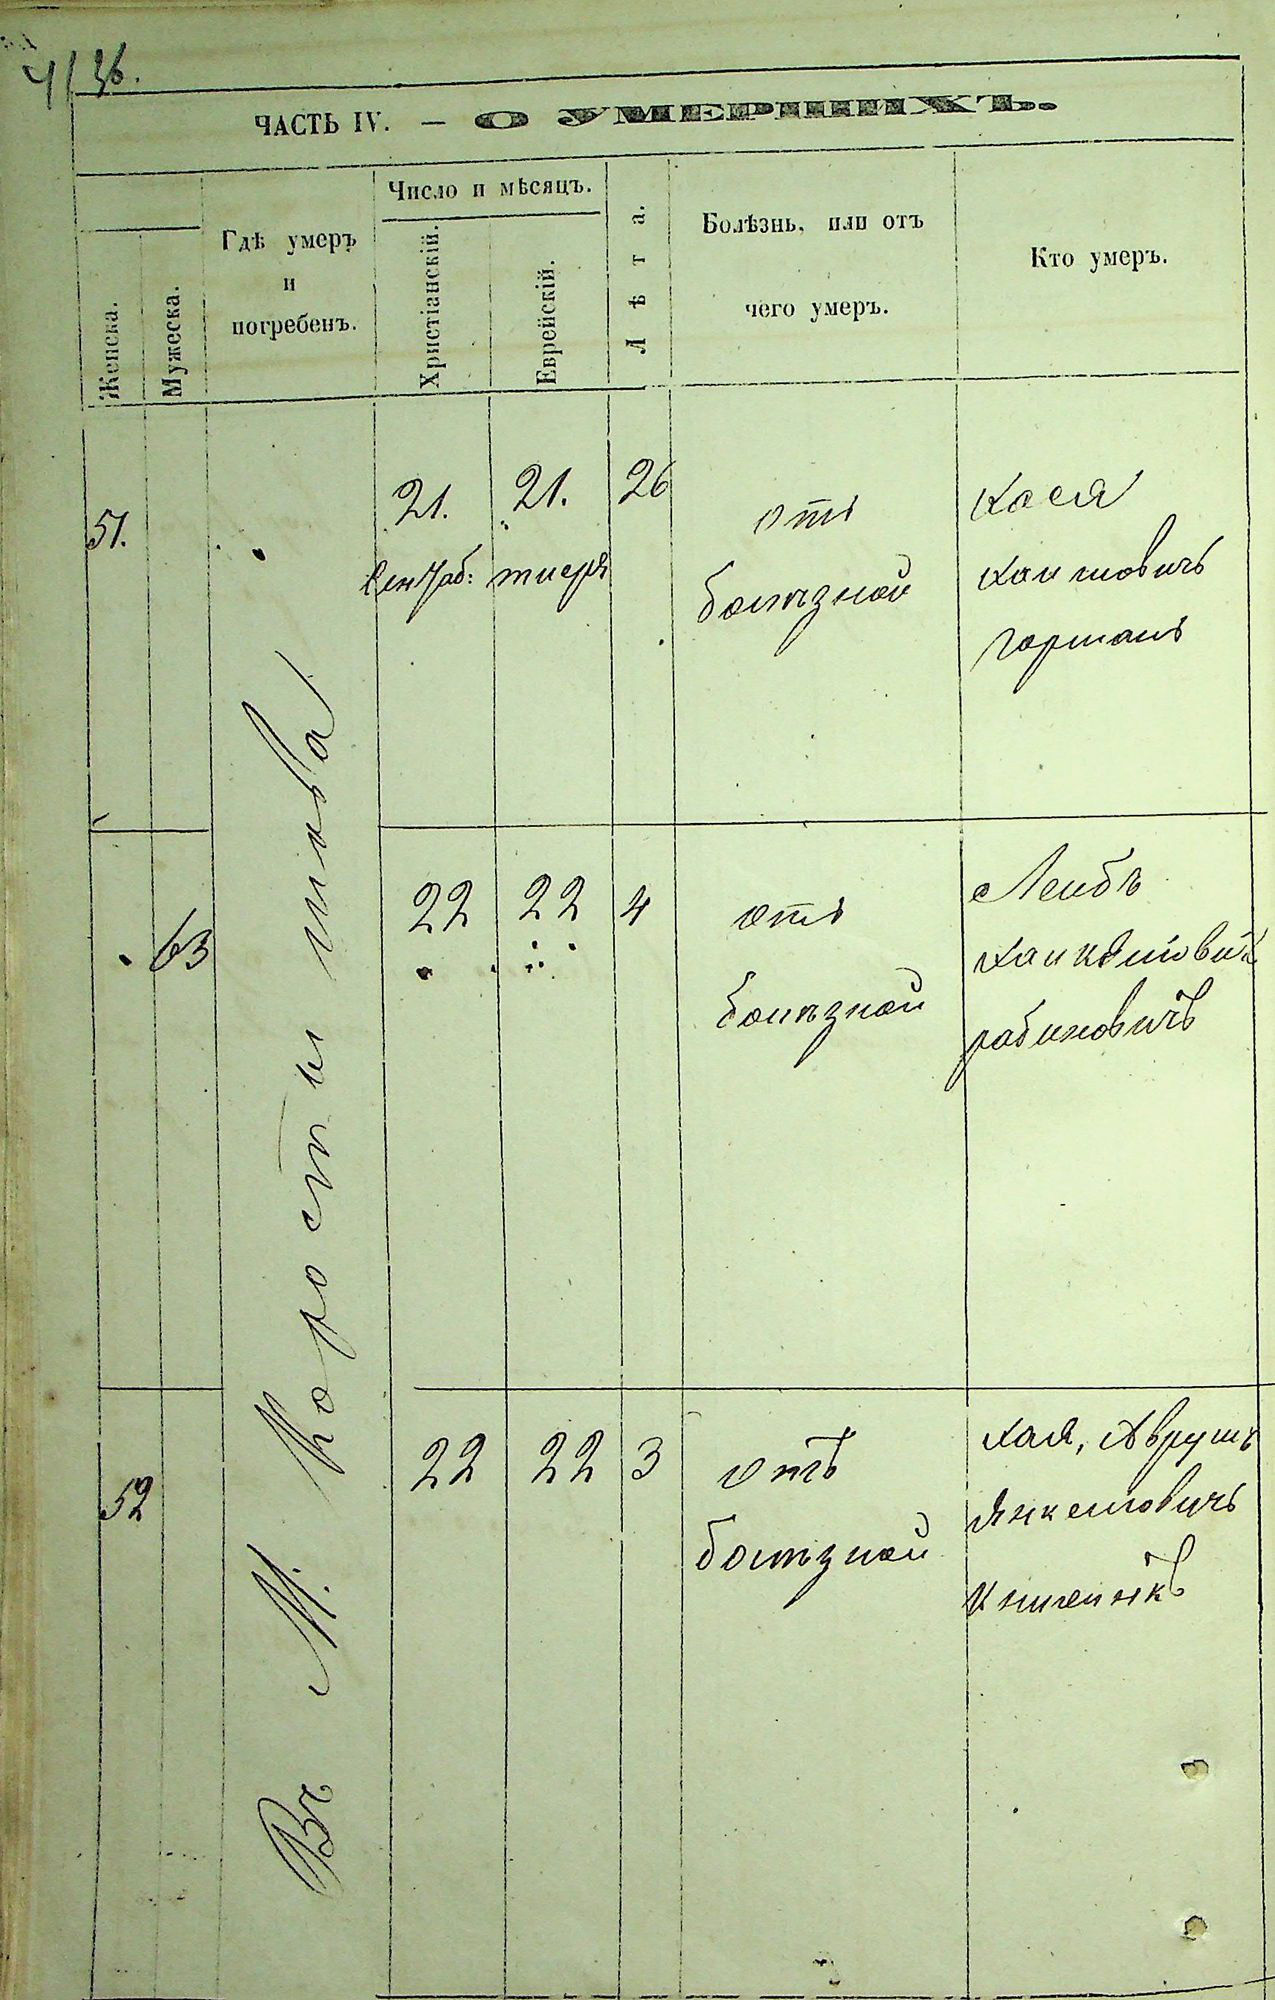 ЧАСТЬ IV. — О УМЕРШИХЪ.
Женска.
Мужеска.
Гдѣ умеръ
и
погребенъ.
Число и мѣсяцъ.
Христіанскій.
Еврейскій.
Лѣта.
Болѣзнь, или отъ
чего умеръ.
Кто умеръ.
Въ М. Коростишовѣ
51.
21.
Сентяб:
21.
тисря
26
отъ
болѣзной
Хася
Хаимовичъ
горманъ
63
22
22
4
отъ
болѣзной
Лейбъ
рабиновичъ
52
22
22
3
отъ
болѣзной
Хая, Аврумъ
Янкелювичъ